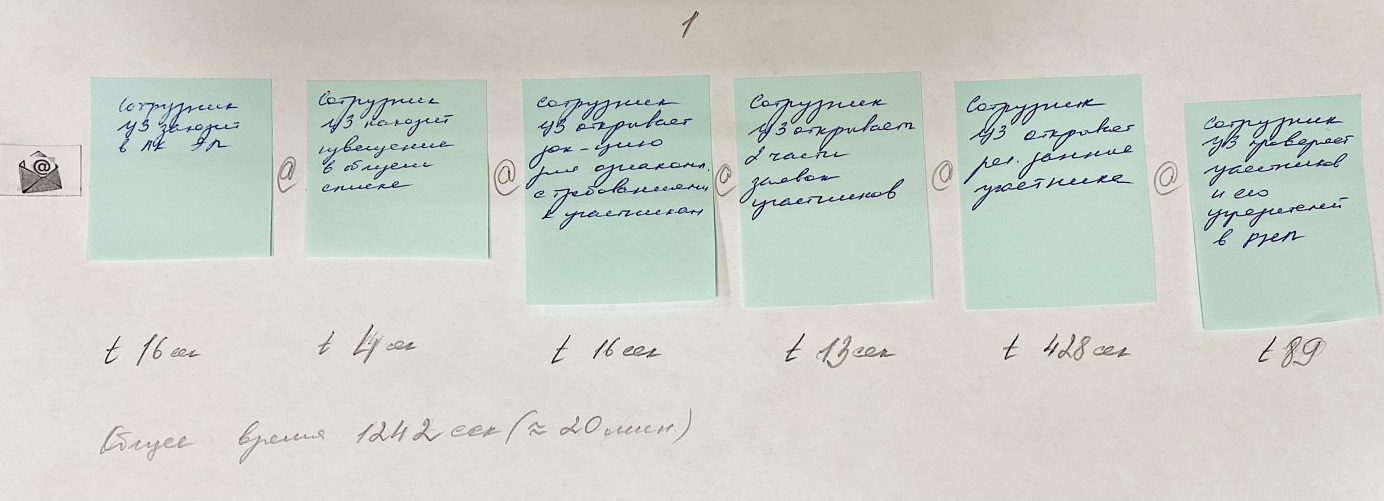 1
Сотрудник
УЗ заходит
в ЛК ЭП
@
Сотрудник
УЗ находит
извещение
в общем
списке
@
Сотрудник
УЗ открывает
док-цию
для ознакомл.
с требованиями
к участникам
@
Сотрудник
УЗ открывает
2 части
заявок
участников
@
Сотрудник
УЗ открывает
рег. данные
участника
@
Сотрудник
УЗ проверяет
участников
и его
учредителей
в РНП
t 16 сек
t 14 сек
t 16 сек
t 13 сек
t 428 сек
t 89
Общее время 1242 сек (≈ 20 мин)